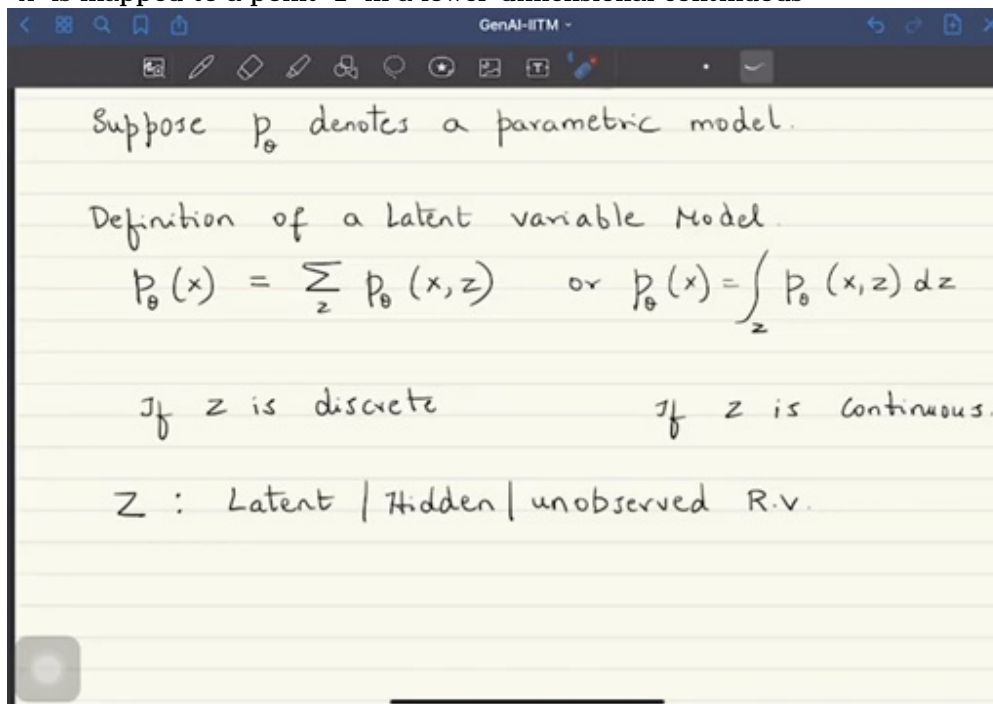 GenAI-IITM
Suppose p_θ denotes a parametric model.
Definition of a Latent variable Model.
p_θ(x) = Σ_z p_θ(x,z) or p_θ(x) = ∫_z p_θ(x,z) dz
If z is discrete If z is continuous.
Z : Latent | Hidden | unobserved R.V.